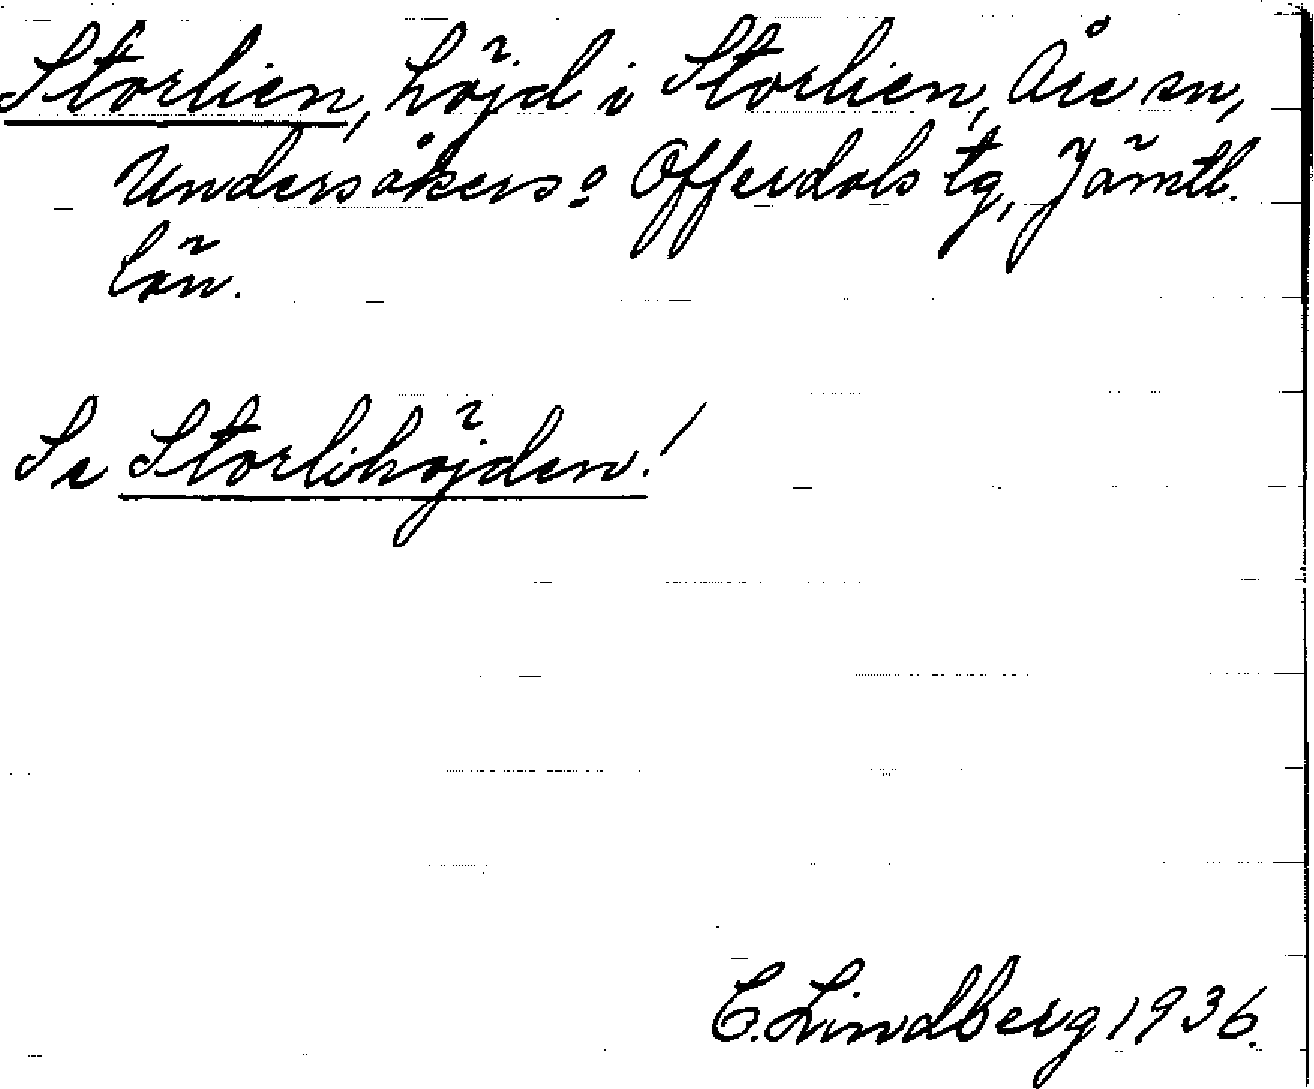 Storlien, höjd i Storlien, Åre sn,
Undersåkers o Offerdals tg, Jämtl.
län.
Se Storlihöjden!
C. Lindberg 1936.